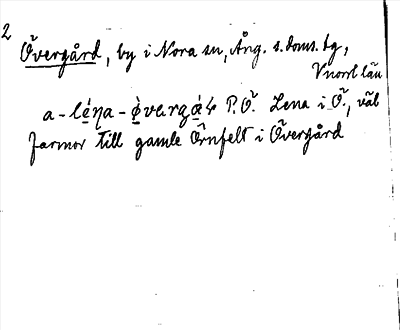 2
Övergård, by i Nora sn, Ång. s. doms. tg,
Vnorrl län
a-lé̱ŋa-ò̱vərgá̱ɽ P.Ö. Lena i Ö., väl
farmor till gamle Örnfelt i Övergård